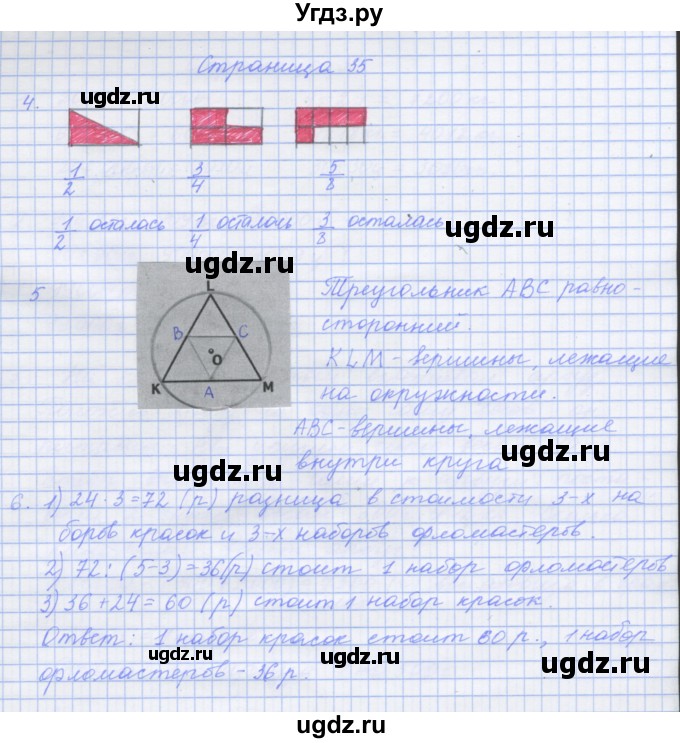 Угдз.ру
Страница 35
4.
1/2 3/4 5/8
1/2 осталась 1/4 осталось 3/8 осталась
5
L
B C
O
K A M
Треугольник ABC равно-
сторонний.
KLM - вершины, лежащие
на окружности.
ABC - вершины, лежащие
внутри круга
6. 1) 24·3=72 (р) разница в стоимости 3-х на
боров красок и 3-х наборов фломастеров.
2) 72:(5-3)=36(р) стоит 1 набор фломастеров
3) 36+24=60 (р) стоит 1 набор красок.
Ответ: 1 набор красок стоит 60 р., 1 набор
фломастеров - 36 р.
ugdz.ru
ugdz.ru
ugdz.ru
ugdz.ru
ugdz.ru
ugdz.ru
ugdz.ru
ugdz.ru
ugdz.ru
ugdz.ru
ugdz.ru